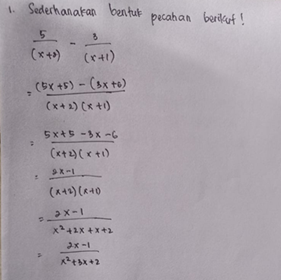 1. Sederhanakan bentuk pecahan berikut!
5/(x+2) - 3/(x+1)
= (5x+5) - (3x+6) / (x+2)(x+1)
= 5x+5-3x-6 / (x+2)(x+1)
= 2x-1 / (x+2)(x+1)
= 2x-1 / x²+2x+x+2
= 2x-1 / x²+3x+2